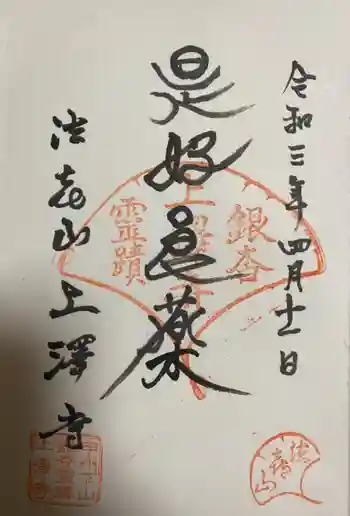 令和三年四月十一日
是好良薬
法喜山上澤寺
銀杏
上澤寺
靈蹟
法喜山